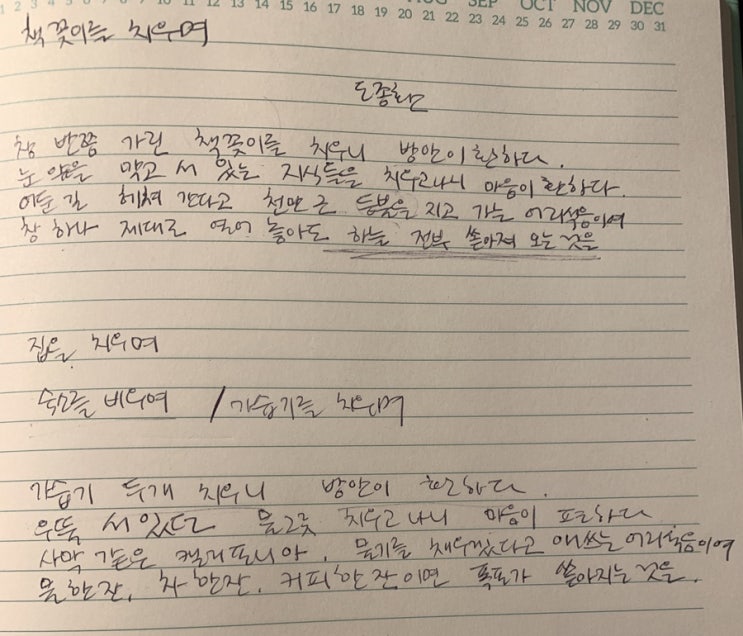 1 2 3 4 5 6 7 8 9 10 11 12 13 14 15 16 17 18 19 20 21 22 23 24 25 26 27 28 29 30 31
SEP OCT NOV DEC
책꽂이를 치우며
도종환
창 반쯤 가린 책꽂이를 치우니 방안이 환하다.
눈 앞을 막고 서 있는 지식들을 치우고나니 마음이 환하다.
어둔 길 헤쳐 간다고 천만근 등불을 지고 가는 어리석음이여
창 하나 제대로 열어 놓아도 하늘 전부 쏟아져 오는 것을
집을 치우며
숙소를 비우며 / 가습기를 치우며
가습기 두개 치우니 방안이 환하다.
우뚝 서있다 물그릇 치우고 나니 마음이 환하다
사막 같은 캘리포니아. 물기를 채우겠다고 애쓰는 어리석음이여
물 한잔, 차 한잔, 커피 한잔이면 폭포가 쏟아지는 것을.